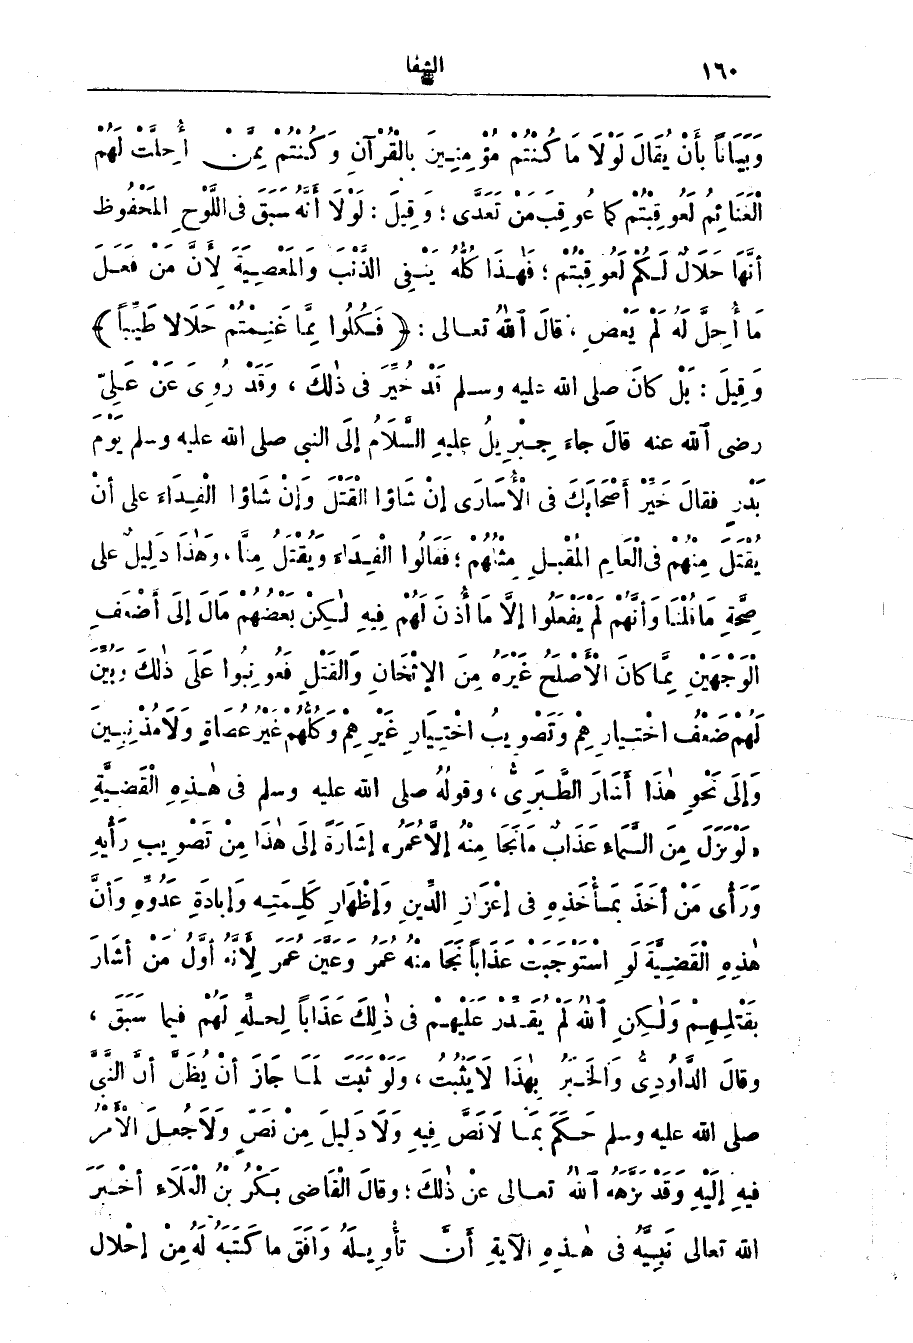 ١٦٠
الشفا
وَبَيَاناً بأَنْ يُقَالَ لَوْلَا مَا كُنْتُمْ مُؤْمِنِينَ بالْقُرْآنِ وَكُنْتُمْ مِمَّنْ أُحِلَّتْ لَهُمُ
الْغَنَائِمُ لَعُوقِبْتُمْ كما عُوقِبَ مَنْ تَعَدَّى ؛ وَقِيلَ : لَوْلَا أَنَّهُ سَبَقَ فى اللَّوْحِ المَحْفُوظِ
أَنَّهَا حَلَالٌ لَـكُمْ لَعُوقِبْتُمْ ؛ فَهٰـذَا كُلُّهُ يَنْـفِى الذَّنْبَ وَالمَعْصِيَةَ لِأَنَّ مَنْ فَعَـلَ
مَا أُحِلَّ لَهُ لَمْ يَعْصِ ، قالَ ٱللهُ تعـالى : ﴿ فَـكُلُوا مِمَّا غَنِـمْتُمْ حَلَالا طَيِّباً ﴾
وَقِيلَ : بَلْ كانَ صلى الله عليه وسـلم قَدْ خُيِّرَ فى ذٰلِكَ ، وَقَدْ رُوِىَ عَنْ عَـلِىّ
رضى ٱلله عنه قالَ جاءَ جِـبْرِيلُ عليهِ السَّلَامُ إِلَى النبى صلى الله عليه وسلم يَوْمَ
بَدْرٍ فقالَ خَيِّرْ أَصْحَابَكَ فى الْأَسَارَى إنْ شَاؤا القَتْلَ وَإنْ شَاؤا الْفِـدَاءَ على أنْ
يُقْتَلَ مِنْهُمْ فى الْعَامِ المُقْبـلِ مِثْلُهُمْ ؛ فقَالُوا الْفِـدَاءَ وَيُقْتَلُ مِنَّا ، وَهٰذَا دَلِيلٌ على
صِحَّةِ مَا قُلْنَا وَأَنَّهُمْ لَمْ يَفْعَلُوا إلَّا مَا أُذِنَ لَهُمْ فِيهِ لٰـكِنْ بَعْضُهُمْ مَالَ إِلَى أَضْعَفِ
الْوَجْهَيْنِ مِمَّا كانَ الْأَصْلَحُ غَيْرَهُ مِنَ الإِثْخَانِ وَالقَتْلِ فَعُوتِبُوا عَلَى ذٰلِكَ وبُيِّنَ
لَهُمْ ضَعْفُ اخْتِـيَارِهِمْ وَتَصْوِيبُ اخْتِـيَارِ غَيْرِهِمْ وَكُلُّهُمْ غَيْرُ عُصَاةٍ وَلَا مُذْنِبِـينَ
وَإِلَى نَحْوِ هٰذَا أَشَارَ الطَّـبَرِىُّ ، وقولُهُ صلى الله عليه وسلم فى هٰـذِهِ الْقَضِيَّةِ
« لَوْ نَزَلَ مِنَ السَّمَاءِ عَذَابٌ مَا نَجَا مِنْهُ إلَّا عُمَرُ » إشَارَةٌ إلَى هٰذَا مِنْ تَصْوِيبِ رَأْيِهِ
وَرَأْى مَنْ أَخَذَ بِمَـأْخَذِهِ فى إعْزَازِ الدِّينِ وَإظْهَارِ كَلِـمَتِـهِ وَإبادَةِ عَدُوِّهِ وَأنَّ
هٰذِهِ الْقَضِيَّةَ لَوِ اسْتَوْجَبَتْ عَذَاباً نَجَا منهُ عُمَرُ وَعَيَّنَ عُمَرَ لِأَنَّهُ أوَّلُ مَنْ أشَارَ
بَقَتْلِـهِمْ وَلٰـكِنِ ٱللهُ لَمْ يُقَـدِّرْ عَلَيْهِـمْ فى ذٰلِكَ عَذَاباً لِحِـلِّهِ لَهُمْ فيما سَبَقَ ،
وقالَ الدَّاوُدِىُّ وَالخَبَرُ بِهٰذَا لَا يَثْبُتُ ، ولَوْ ثَبَتَ لَمَا جَازَ أنْ يُظَنَّ أنَّ النَّبِىَّ
صلى الله عليه وسلم حَـكَمَ بِمَـا لَا نَصَّ فِيهِ وَلَا دَلِيلَ مِنْ نَصٍّ وَلَا جُعِـلَ الأَمْرُ
فيهِ إلَيْهِ وَقَدْ نَزَّهَهُ ٱللهُ تعـالى عنْ ذٰلِكَ ؛ وقالَ القَاضى بَـكْرُ بنُ الْعَلَاءِ أخْـبَرَ
الله تعالى نَبِيَّهُ فى هٰـذِهِ الآيةِ أَنَّ تأْوِيـلَهُ وَافَقَ ما كَتَبَهُ لَهُ مِنْ إحْلَالِ